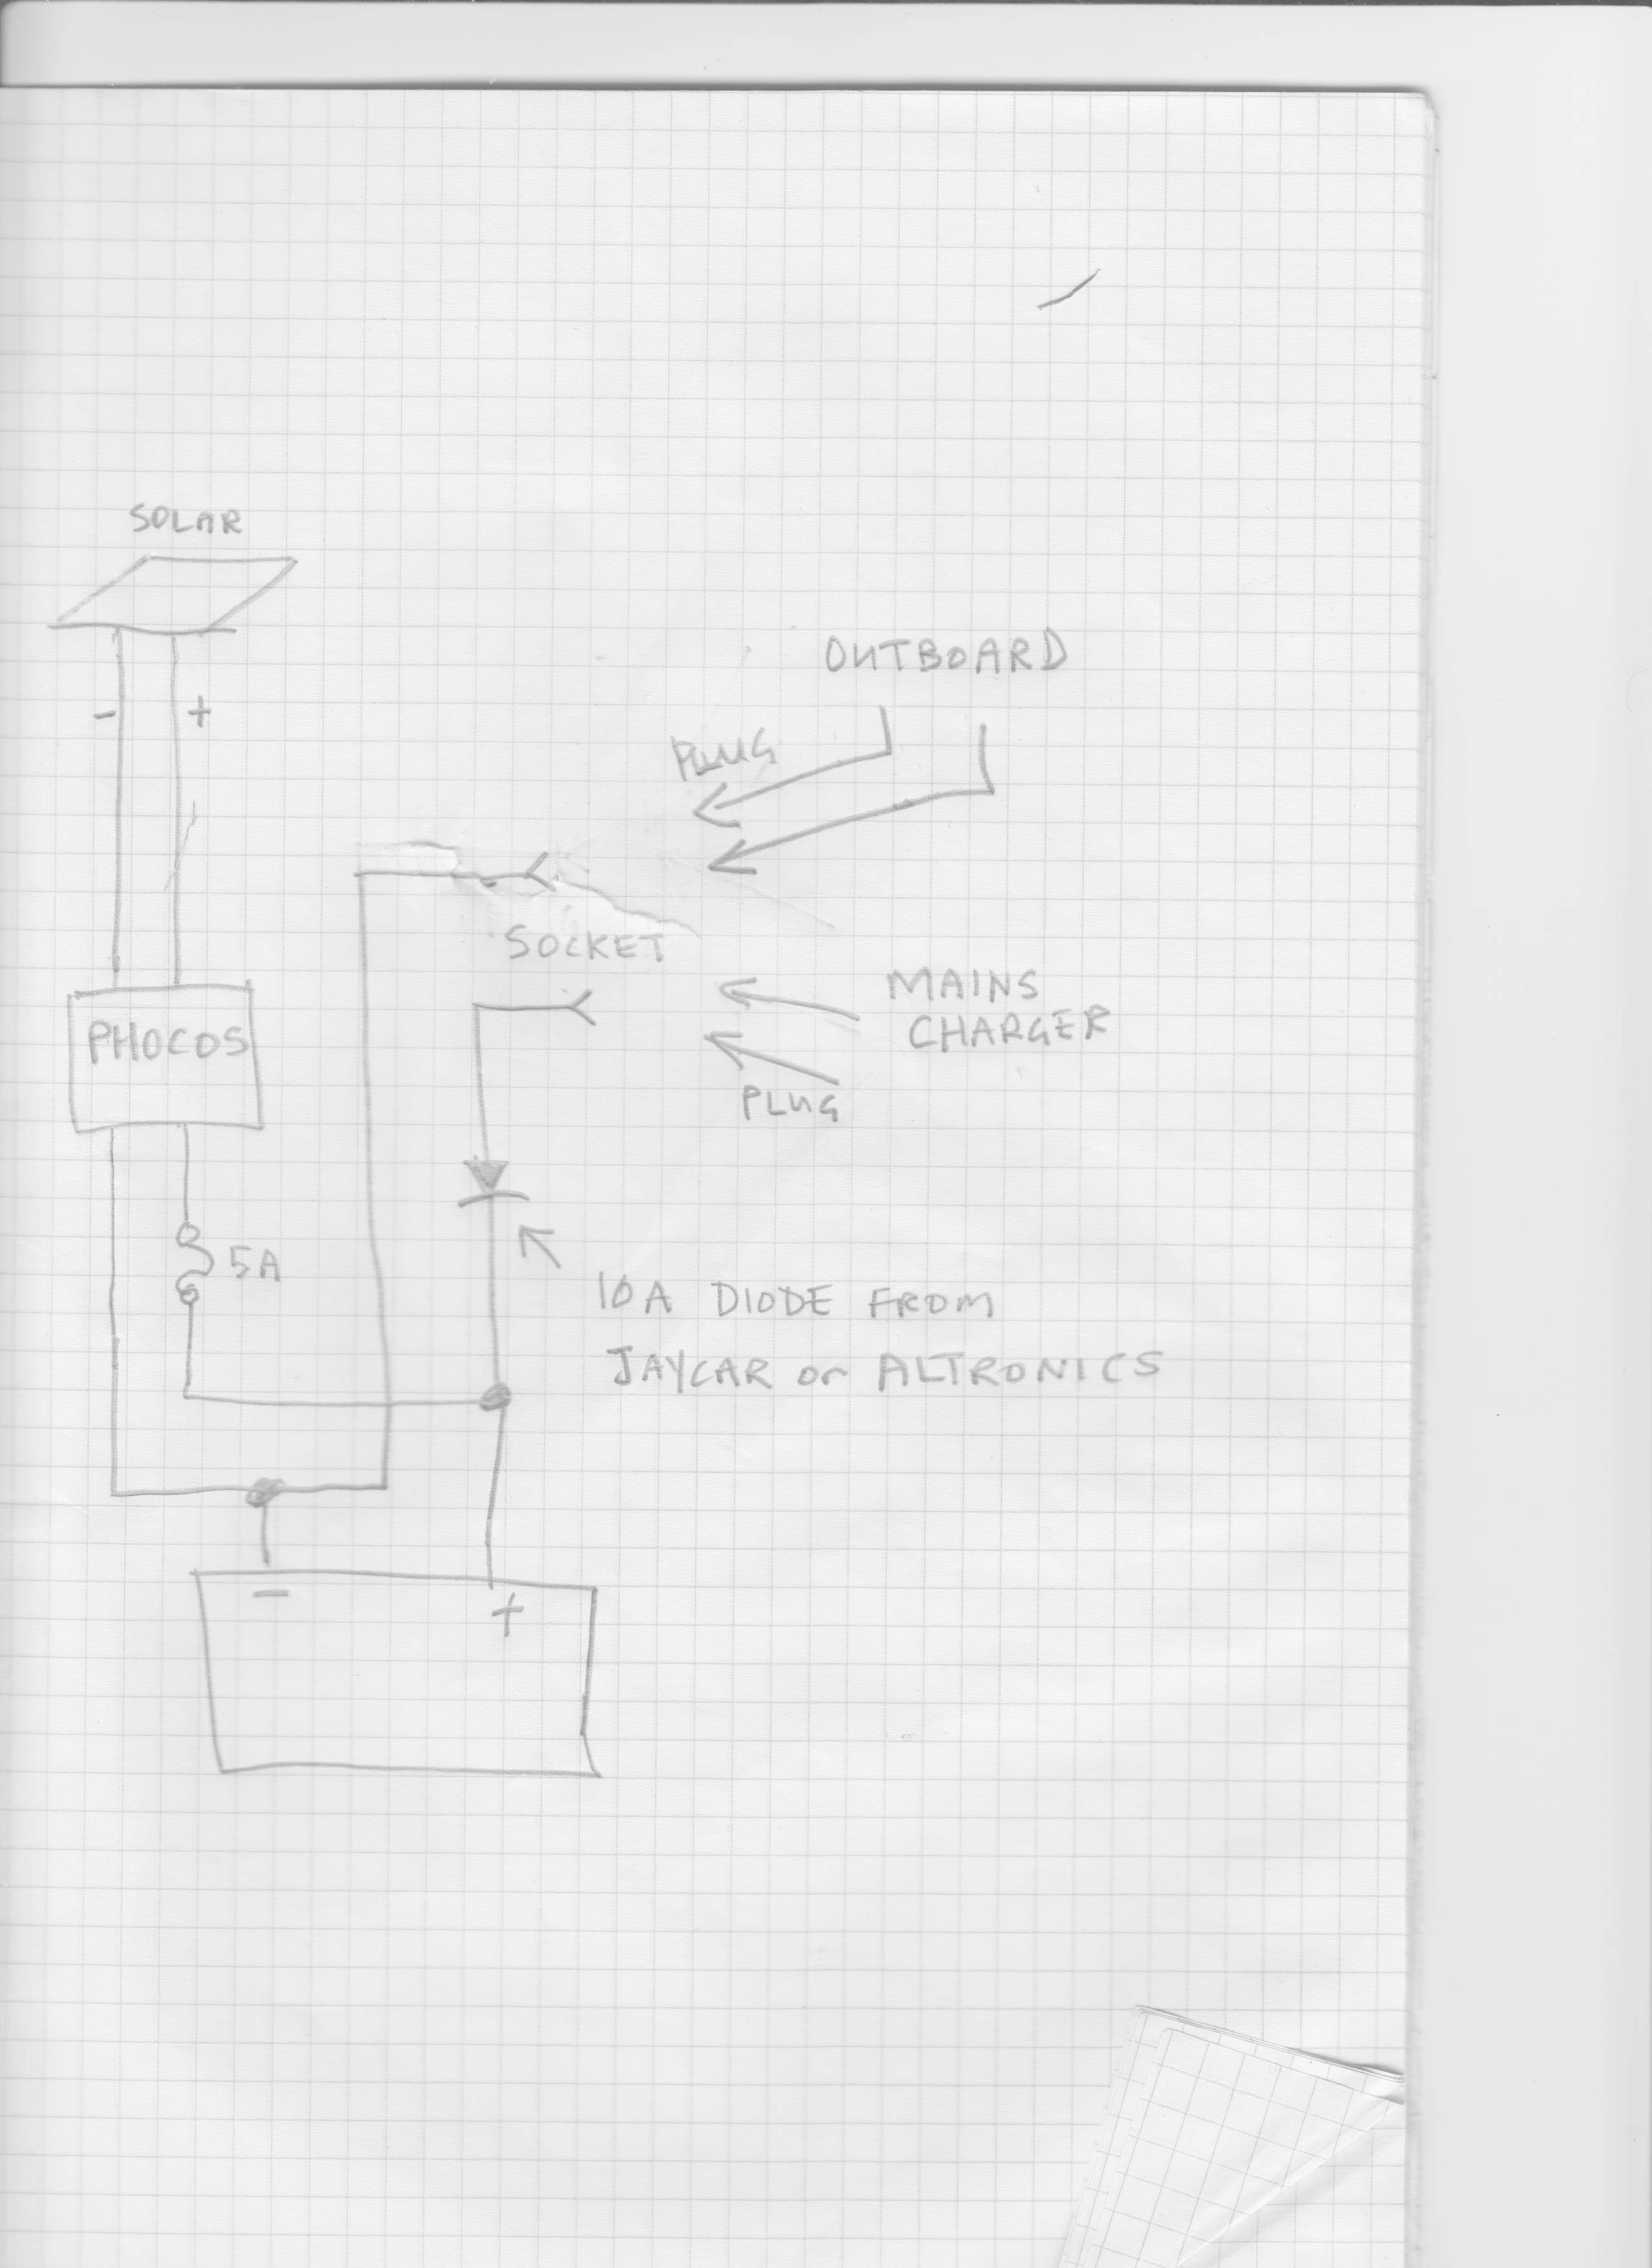 SOLAR
- +
OUTBOARD
PLUG
SOCKET
MAINS
CHARGER
PLUG
PHOCOS
5A
10A DIODE FROM
JAYCAR or ALTRONICS
- +